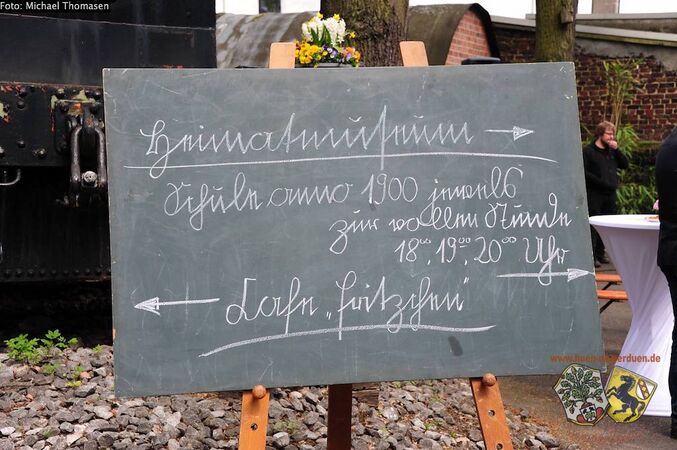 Foto: Michael Thomasen
Heimatmuseum →
Schule anno 1900 jeweils
zur vollen Stunde
18⁰⁰, 19⁰⁰, 20⁰⁰ Uhr
← Cafe „Fritzchen" →